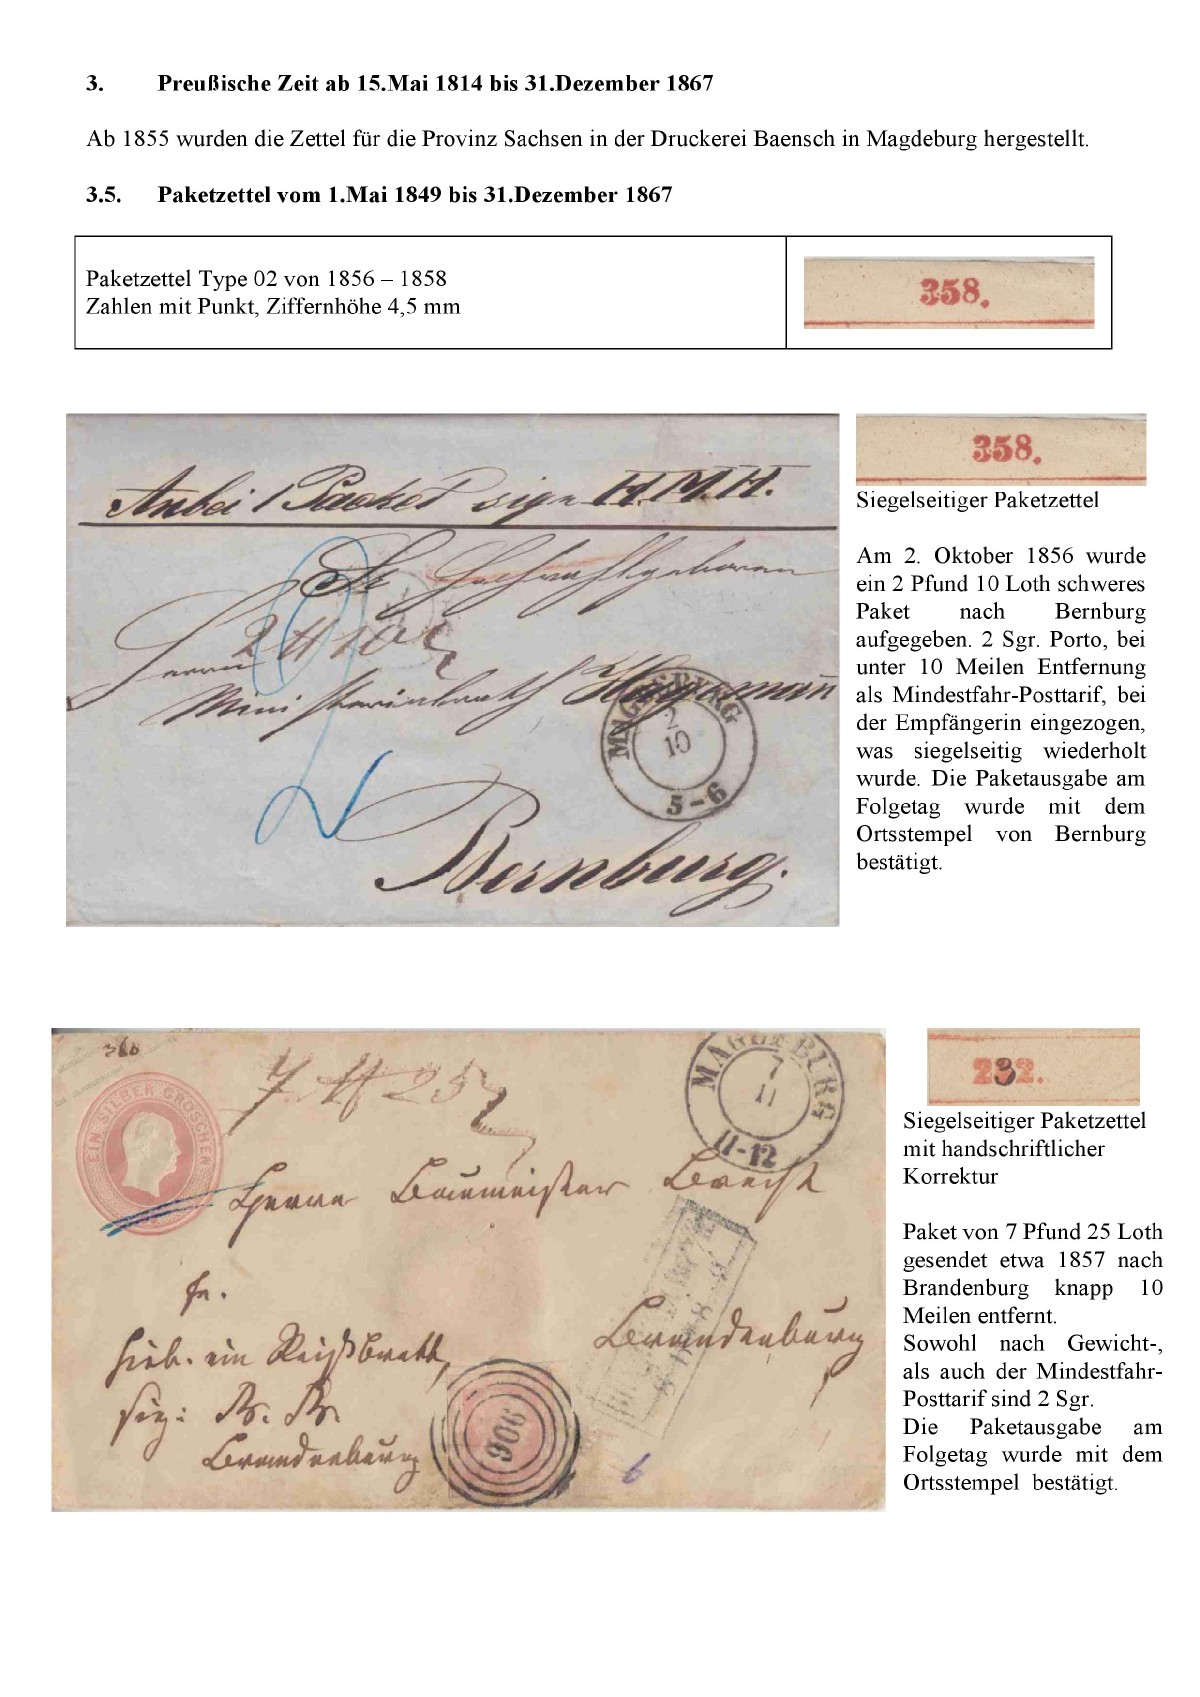 3. Preußische Zeit ab 15.Mai 1814 bis 31.Dezember 1867
Ab 1855 wurden die Zettel für die Provinz Sachsen in der Druckerei Baensch in Magdeburg hergestellt.
3.5. Paketzettel vom 1.Mai 1849 bis 31.Dezember 1867
Paketzettel Type 02 von 1856 – 1858
Zahlen mit Punkt, Ziffernhöhe 4,5 mm
358.
Anbei 1 Packet sign H.M.H.
Herrn
MAGDEBURG
2
10
5-6
Bernburg.
358.
Siegelseitiger Paketzettel
Am 2. Oktober 1856 wurde
ein 2 Pfund 10 Loth schweres
Paket nach Bernburg
aufgegeben. 2 Sgr. Porto, bei
unter 10 Meilen Entfernung
als Mindestfahr-Posttarif, bei
der Empfängerin eingezogen,
was siegelseitig wiederholt
wurde. Die Paketausgabe am
Folgetag wurde mit dem
Ortsstempel von Bernburg
bestätigt.
360
EIN SILBER GROSCHEN
MAGDEBURG
7
11
11-12
Herrn Baumeister Brecht
Brandenburg
fr.
hieb. ein Reißbrett,
sig: B. B.
Brandenburg
906
6
232.
Siegelseitiger Paketzettel
mit handschriftlicher
Korrektur
Paket von 7 Pfund 25 Loth
gesendet etwa 1857 nach
Brandenburg knapp 10
Meilen entfernt.
Sowohl nach Gewicht-,
als auch der Mindestfahr-
Posttarif sind 2 Sgr.
Die Paketausgabe am
Folgetag wurde mit dem
Ortsstempel bestätigt.